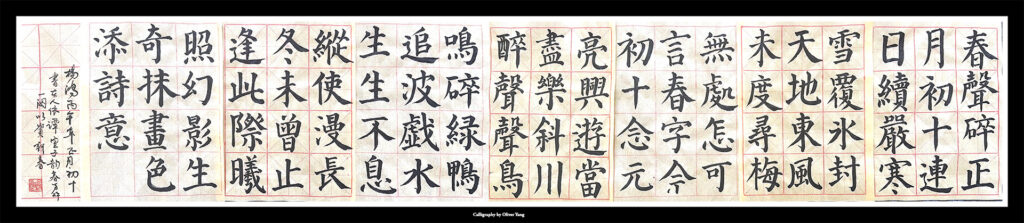 春聲碎正
月初十連
日續嚴寒
雪覆氷封
天地東風
未度尋梅
無處怎可
言春字今
初十念元
亮興遊當
盡樂斜川
醉聲聲鳥
鳴碎緑鴨
追波戲水
生生不息
縱使漫長
冬未曾止
逢此際曦
照幻影生
奇抹畫色
添詩意
丙午年正月初十
譚宣子韵春聲碎
一闋以賀新春
Calligraphy by Oliver Yang